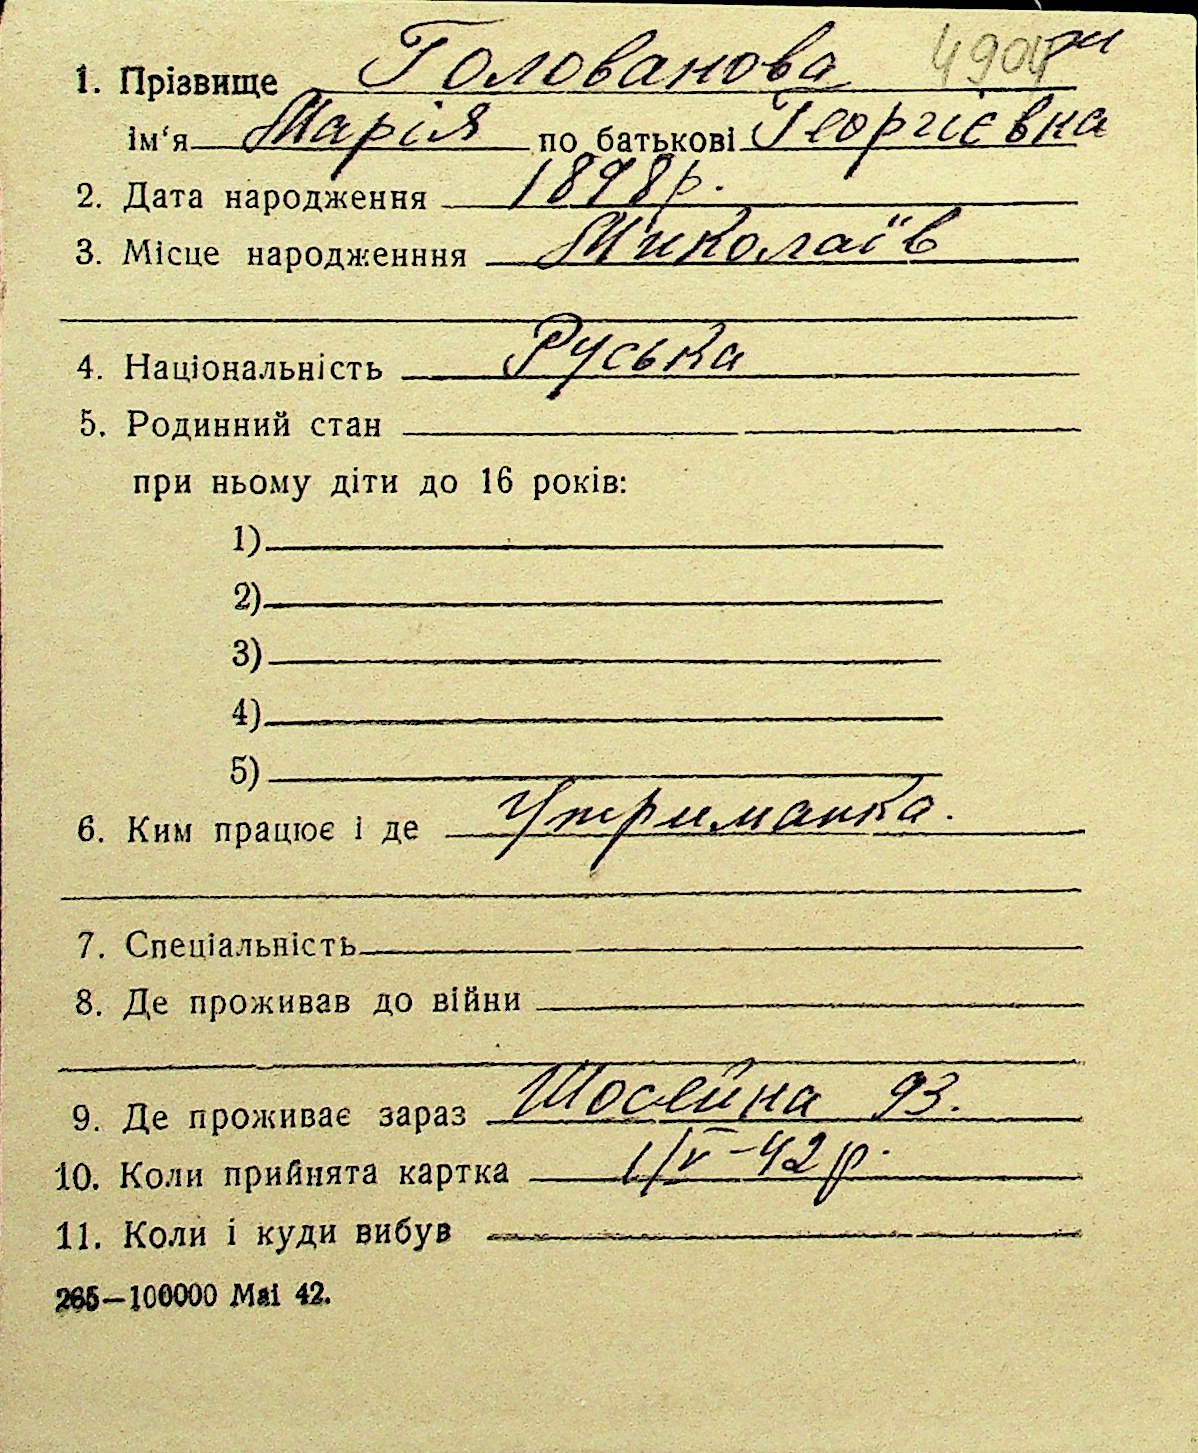 1. Прізвище Голованова 4904
ім'я Марія по батькові Георгієвна
2. Дата народження 1898 р.
3. Місце народженння Миколаїв
4. Національність Руська
5. Родинний стан
при ньому діти до 16 років:
1)
2)
3)
4)
5)
6. Ким працює і де Утриманка.
7. Спеціальність
8. Де проживав до війни
9. Де проживає зараз Шосейна 93.
10. Коли прийнята картка 1/V-42 р.
11. Коли і куди вибув
265—100000 Mai 42.